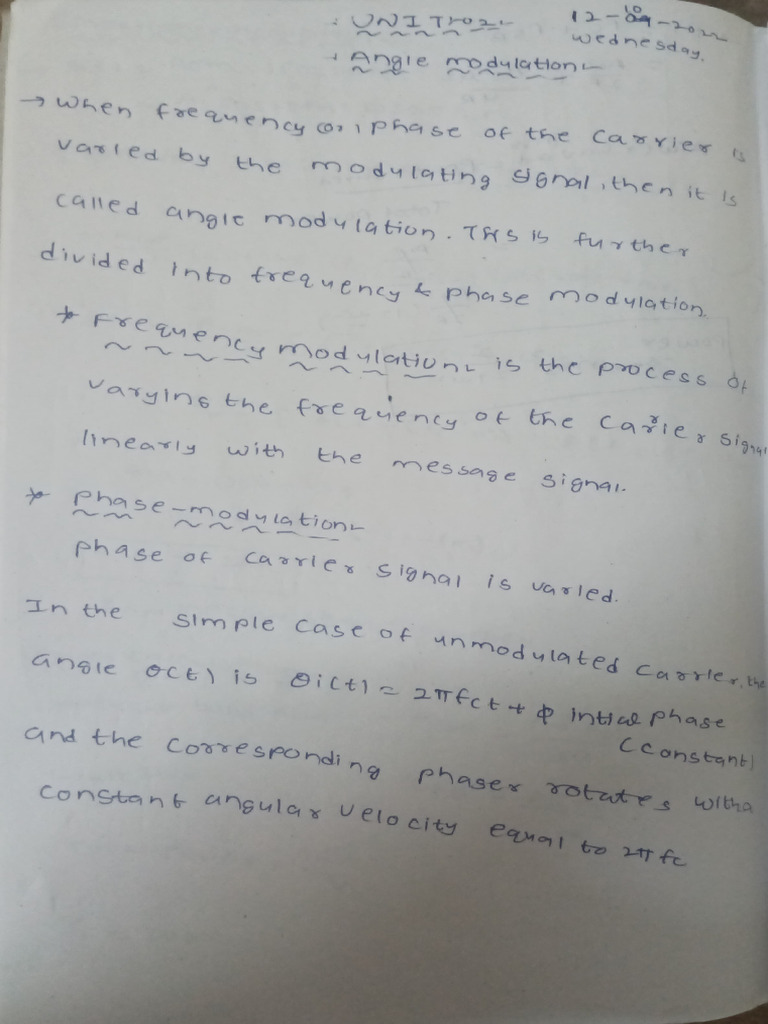 : UNIT-02:-
12-10-2022
Wednesday.
: Angle modulation:-
→ When frequency (or) phase of the carrier is
varied by the modulating signal, then it is
called angle modulation. This is further
divided into frequency & phase modulation.
* Frequency modulation:- is the process of
varying the frequency of the carrier signal
linearly with the message signal.
* phase-modulation:-
phase of carrier signal is varied.
In the simple case of unmodulated carrier, the
angle θ(t) is θi(t) = 2πfct + ϕ intial phase
(constant)
and the corresponding phaser rotates with a
constant angular velocity equal to 2πfc